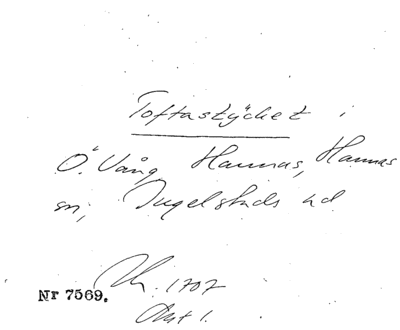 Toftastycket i
Ö. Vång Hannas, Hannas
sn, Ingelstads hd
1707
Nr 7569.
Akt 1.